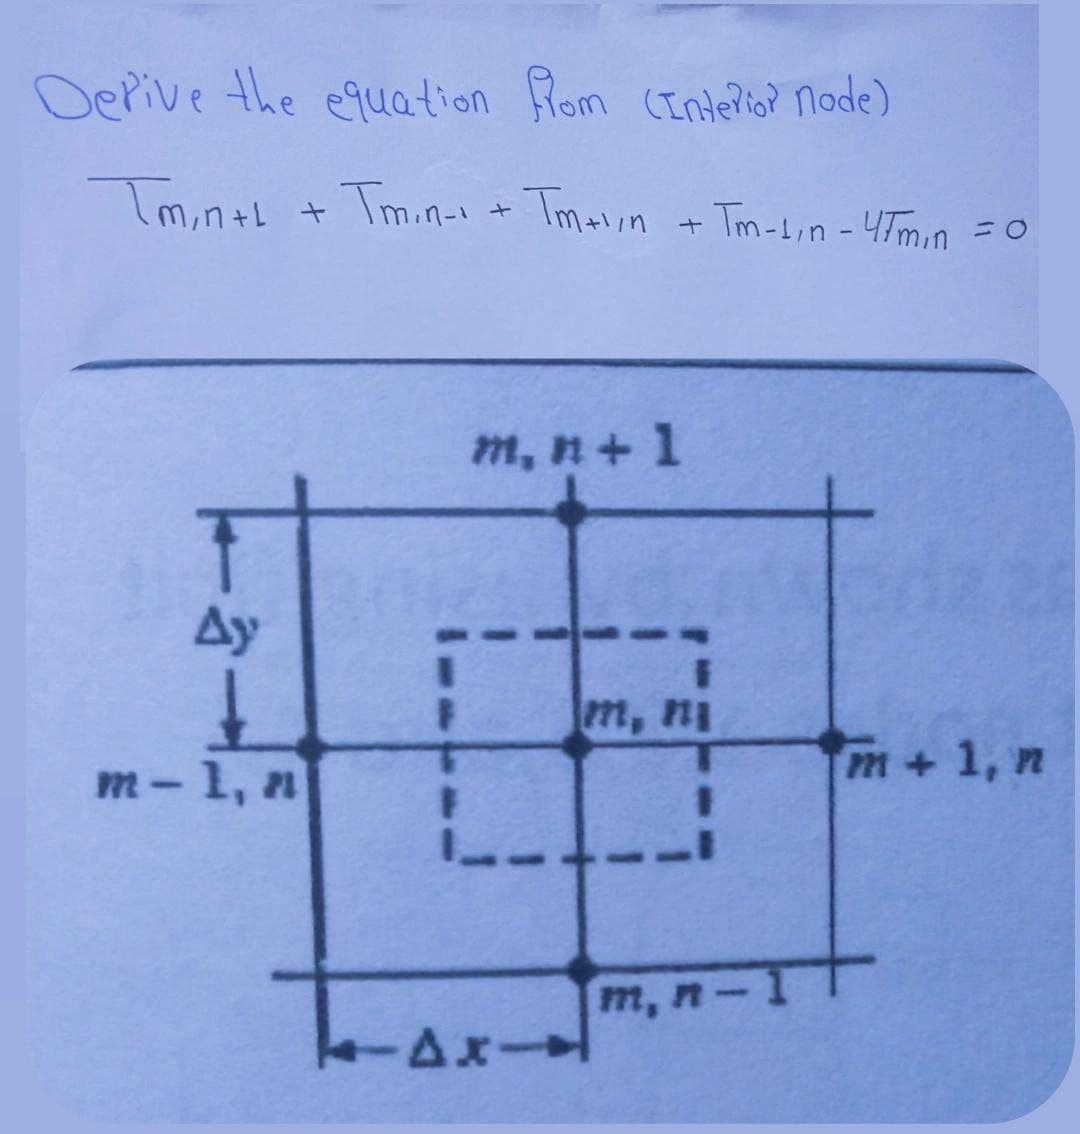 Derive the equation from (Interior node)
Tm,n+1 + Tm,n-1 + Tm+1,n + Tm-1,n - 4Tm,n = 0
m, n + 1
Δy
m, n
m - 1, n
m + 1, n
m, n - 1
Δx